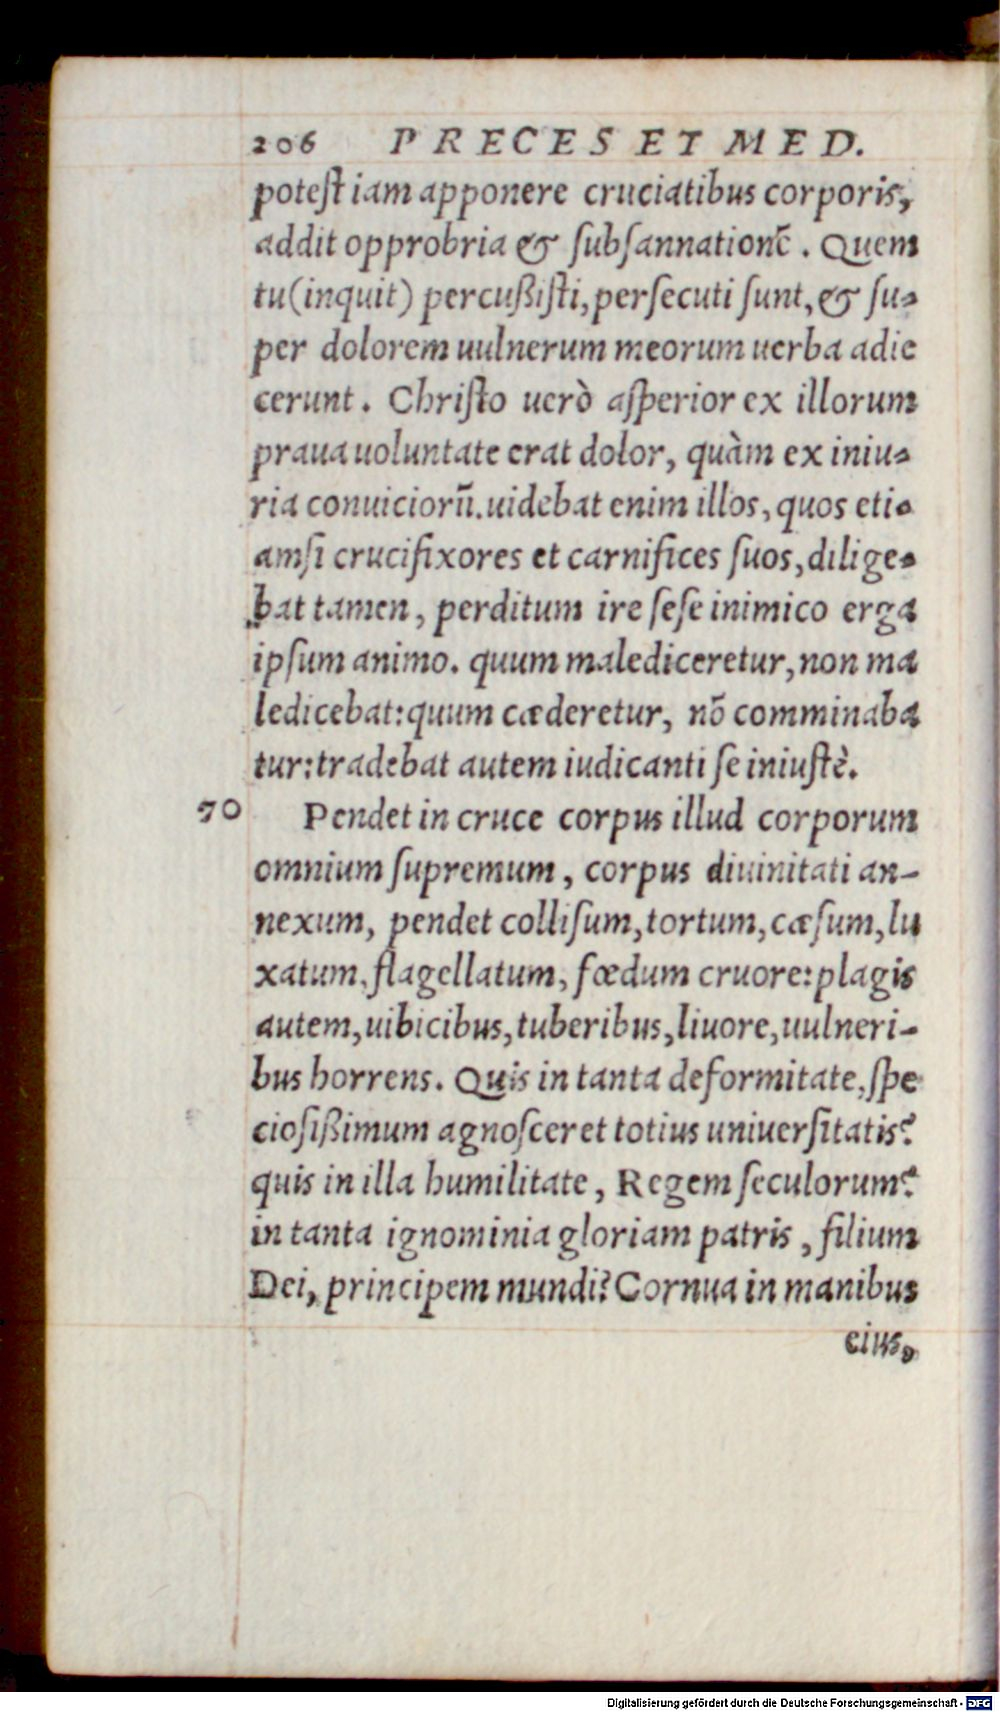 206 PRECES ET MED.
poteſt iam apponere cruciatibus corporis,
addit opprobria & ſubſannationē. Quem
tu (inquit) percußiſti, perſecuti ſunt, & ſu-
per dolorem uulnerum meorum uerba adie
cerunt. Chriſto uerò aſperior ex illorum
praua uoluntate erat dolor, quàm ex iniu-
ria conuiciorũ. uidebat enim illos, quos eti-
amſi crucifixores et carnifices ſuos, dilige-
bat tamen, perditum ire ſeſe inimico erga
ipſum animo. quum malediceretur, non ma
ledicebat: quum cæderetur, nō comminaba
tur: tradebat autem iudicanti ſe iniuſtè.
70 Pendet in cruce corpus illud corporum
omnium ſupremum, corpus diuinitati an-
nexum, pendet colliſum, tortum, cæſum, lu
xatum, flagellatum, fœdum cruore: plagis
autem, uibicibus, tuberibus, liuore, uulneri-
bus horrens. Quis in tanta deformitate, ſpe
cioſißimum agnoſceret totius uniuerſitatis?
quis in illa humilitate, Regem ſeculorum?
in tanta ignominia gloriam patris, filium
Dei, principem mundi? Cornua in manibus
eius,
Digitalisierung gefördert durch die Deutsche Forschungsgemeinschaft - DFG